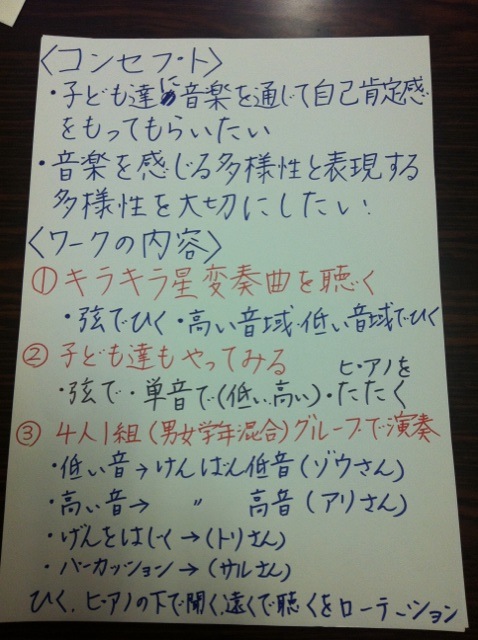 〈コンセプト〉
・子ども達に音楽を通じて自己肯定感
をもってもらいたい
・音楽を感じる多様性と表現する
多様性を大切にしたい!
〈ワークの内容〉
①キラキラ星変奏曲を聴く
・弦でひく・高い音域・低い音域でひく
②子ども達もやってみる
・弦で・単音で(低い、高い)・ピアノをたたく
③4人1組(男女学年混合)グループで演奏
・低い音→けんばん低音(ゾウさん)
・高い音→ 〃 高音(アリさん)
・げんをはじく→(トリさん)
・パーカッション→(サルさん)
ひく、ピアノの下で聞く、遠くで聴くをローテーション